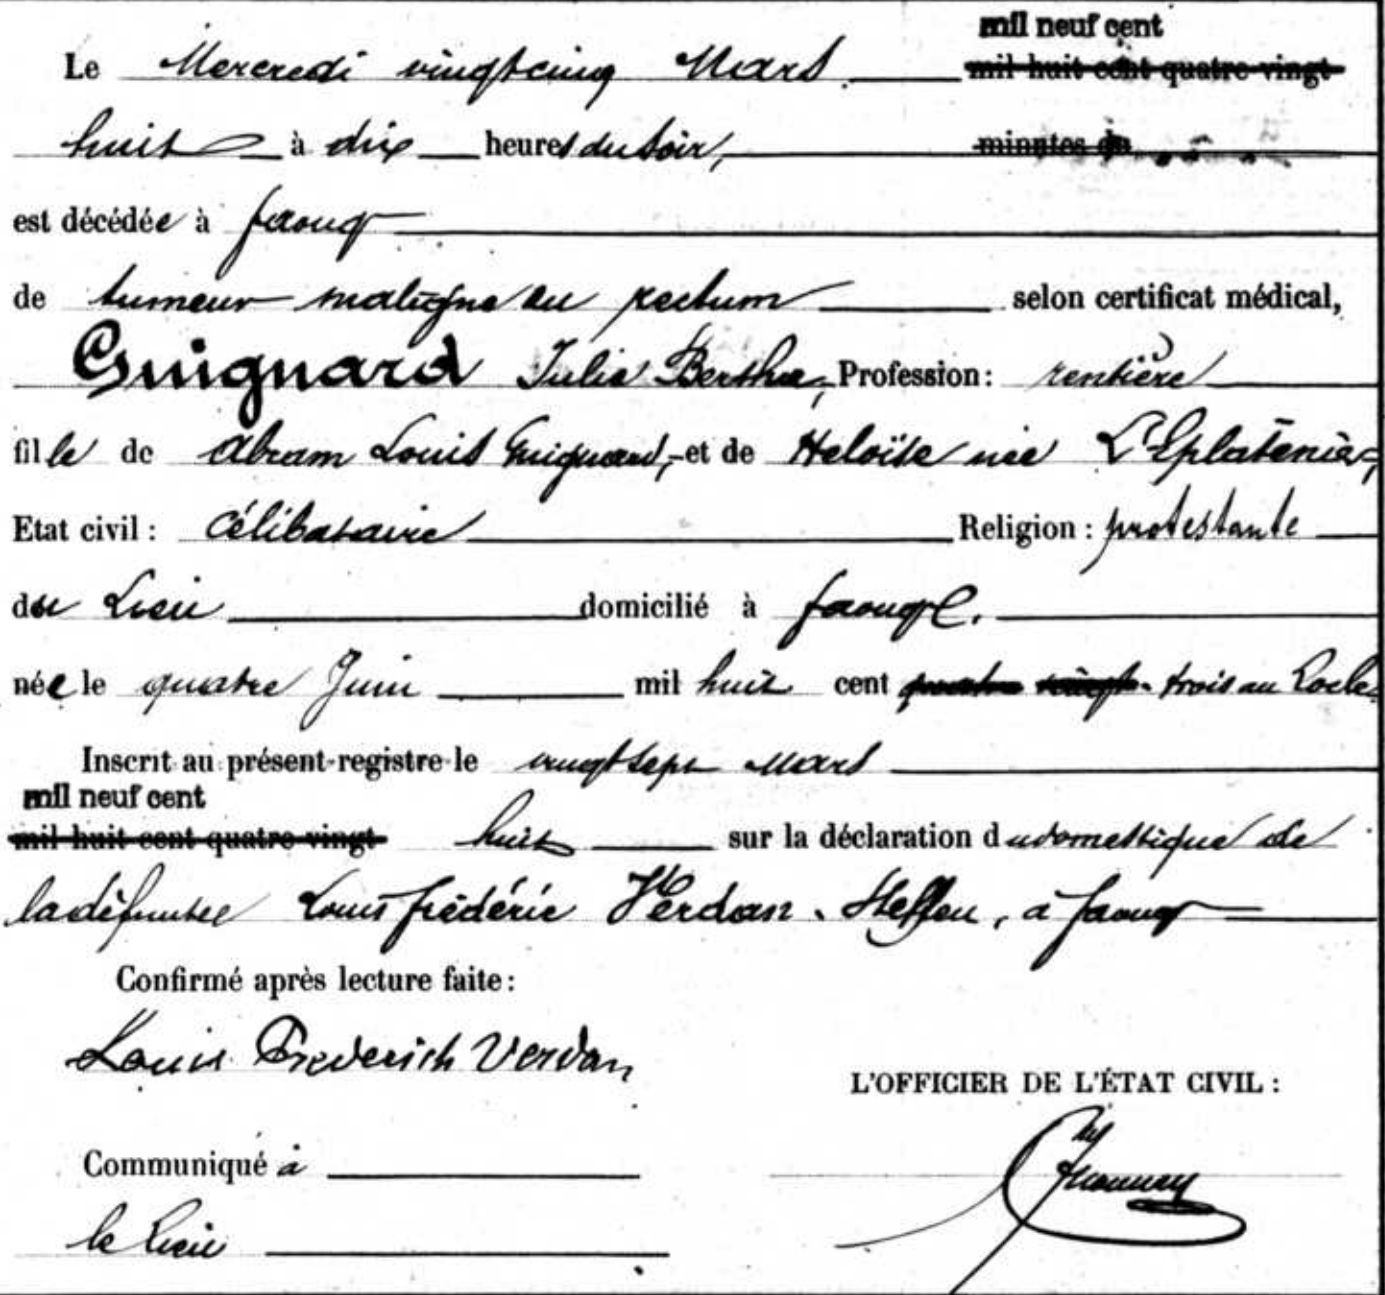 mil neuf cent
Le Mercredi vingtcinq Mars mil huit cent quatre-vingt
huit à dix heures du soir, minutes du
est décédée à faoug
de tumeur maligne au rectum selon certificat médical,
Guignard Julie Berthe, Profession: rentière
fille de Abram Louis Guignard, et de Héloïse née L'Eplatenier,
Etat civil: Célibataire Religion: protestante
du Lieu domicilié à faoug.
née le quatre Juin mil huit cent quatre vingt trois au Locle
Inscrit au présent registre le vingtsept Mars
mil neuf cent
mil huit cent quatre-vingt huit sur la déclaration du domestique de
la défunte Louis frédéric Verdan. Steffen, à faoug
Confirmé après lecture faite:
Louis Frederich Verdan
L'OFFICIER DE L'ÉTAT CIVIL:
Communiqué à
le Lieu